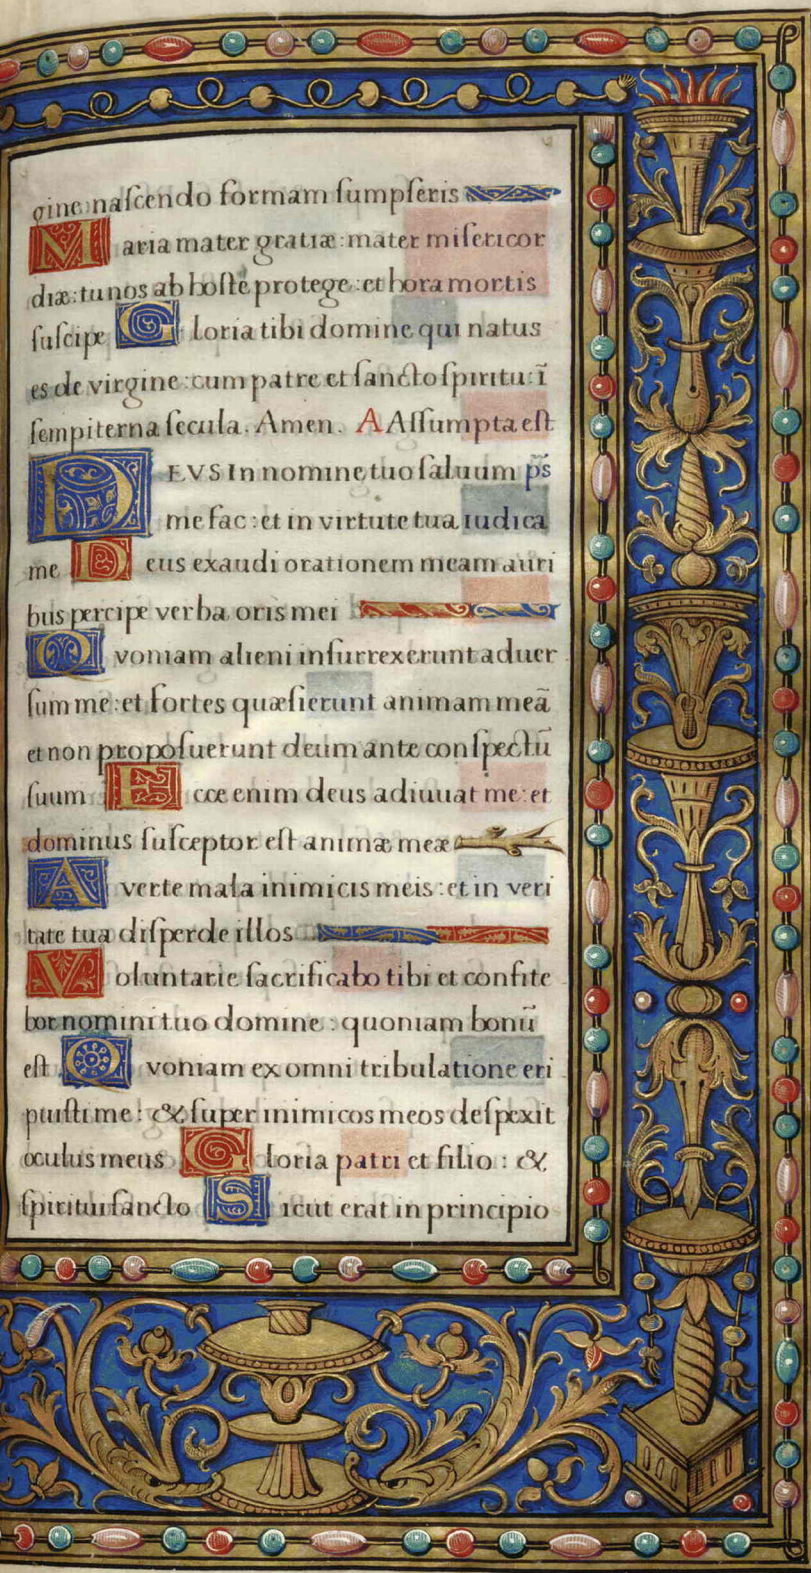 gine naſcendo formam ſumpſeris
Maria mater gratiæ: mater miſericor
diæ: tu nos ab hoſte protege: et hora mortis
ſuſcipe Gloria tibi domine qui natus
es de virgine: cum patre et ſancto ſpiritu: ī
ſempiterna ſecula. Amen. A Aſſumpta eſt
DEVS In nomine tuo ſaluum p̄s
me fac: et in virtute tua iudica
me Deus exaudi orationem meam auri
bus percipe verba oris mei
Quoniam alieni inſurrexerunt aduer
ſum me: et fortes quæſierunt animam meā
et non propoſuerunt deum ante conſpectū
ſuum Ecce enim deus adiuuat me: et
dominus ſuſceptor eſt animæ meæ
Auerte mala inimicis meis: et in veri
tate tua diſperde illos
Voluntarie ſacrificabo tibi et confite
bor nomini tuo domine: quoniam bonū
eſt Qvoniam ex omni tribulatione eri
puiſti me: & ſuper inimicos meos deſpexit
oculus meus Gloria patri et filio: &
ſpiritui ſancto Sicut erat in principio